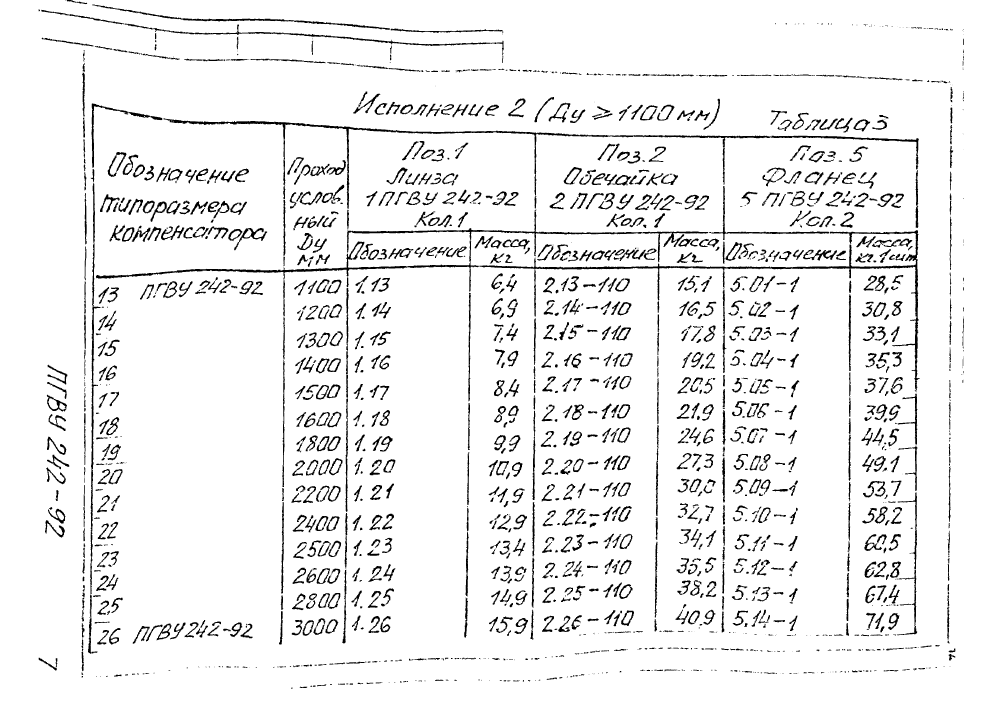 Исполнение 2 (Ду ≥ 1100 мм) Таблица 3
Обозначение типоразмера компенсатора
Проход услов. ный Ду мм
Поз. 1 Линза 1 ПГВУ 242-92 Кол. 1
Поз. 2 Обечайка 2 ПГВУ 242-92 Кол. 1
Поз. 5 Фланец 5 ПГВУ 242-92 Кол. 2
Обозначение Масса, кг Обозначение Масса, кг Обозначение Масса, кг. 1 шт
13 ПГВУ 242-92 1100 1.13 6,4 2.13-110 15,1 5.01-1 28,5
14 1200 1.14 6,9 2.14-110 16,5 5.02-1 30,8
15 1300 1.15 7,4 2.15-110 17,8 5.03-1 33,1
16 1400 1.16 7,9 2.16-110 19,2 5.04-1 35,3
17 1500 1.17 8,4 2.17-110 20,5 5.05-1 37,6
18 1600 1.18 8,9 2.18-110 21,9 5.06-1 39,9
19 1800 1.19 9,9 2.19-110 24,6 5.07-1 44,5
20 2000 1.20 10,9 2.20-110 27,3 5.08-1 49.1
21 2200 1.21 11,9 2.21-110 30,0 5.09-1 53,7
22 2400 1.22 12,9 2.22-110 32,7 5.10-1 58,2
23 2500 1.23 13,4 2.23-110 34,1 5.11-1 60,5
24 2600 1.24 13,9 2.24-110 35,5 5.12-1 62,8
25 2800 1.25 14,9 2.25-110 38,2 5.13-1 67,4
26 ПГВУ 242-92 3000 1.26 15,9 2.26-110 40,9 5.14-1 71,9
ПГВУ 242-92
7